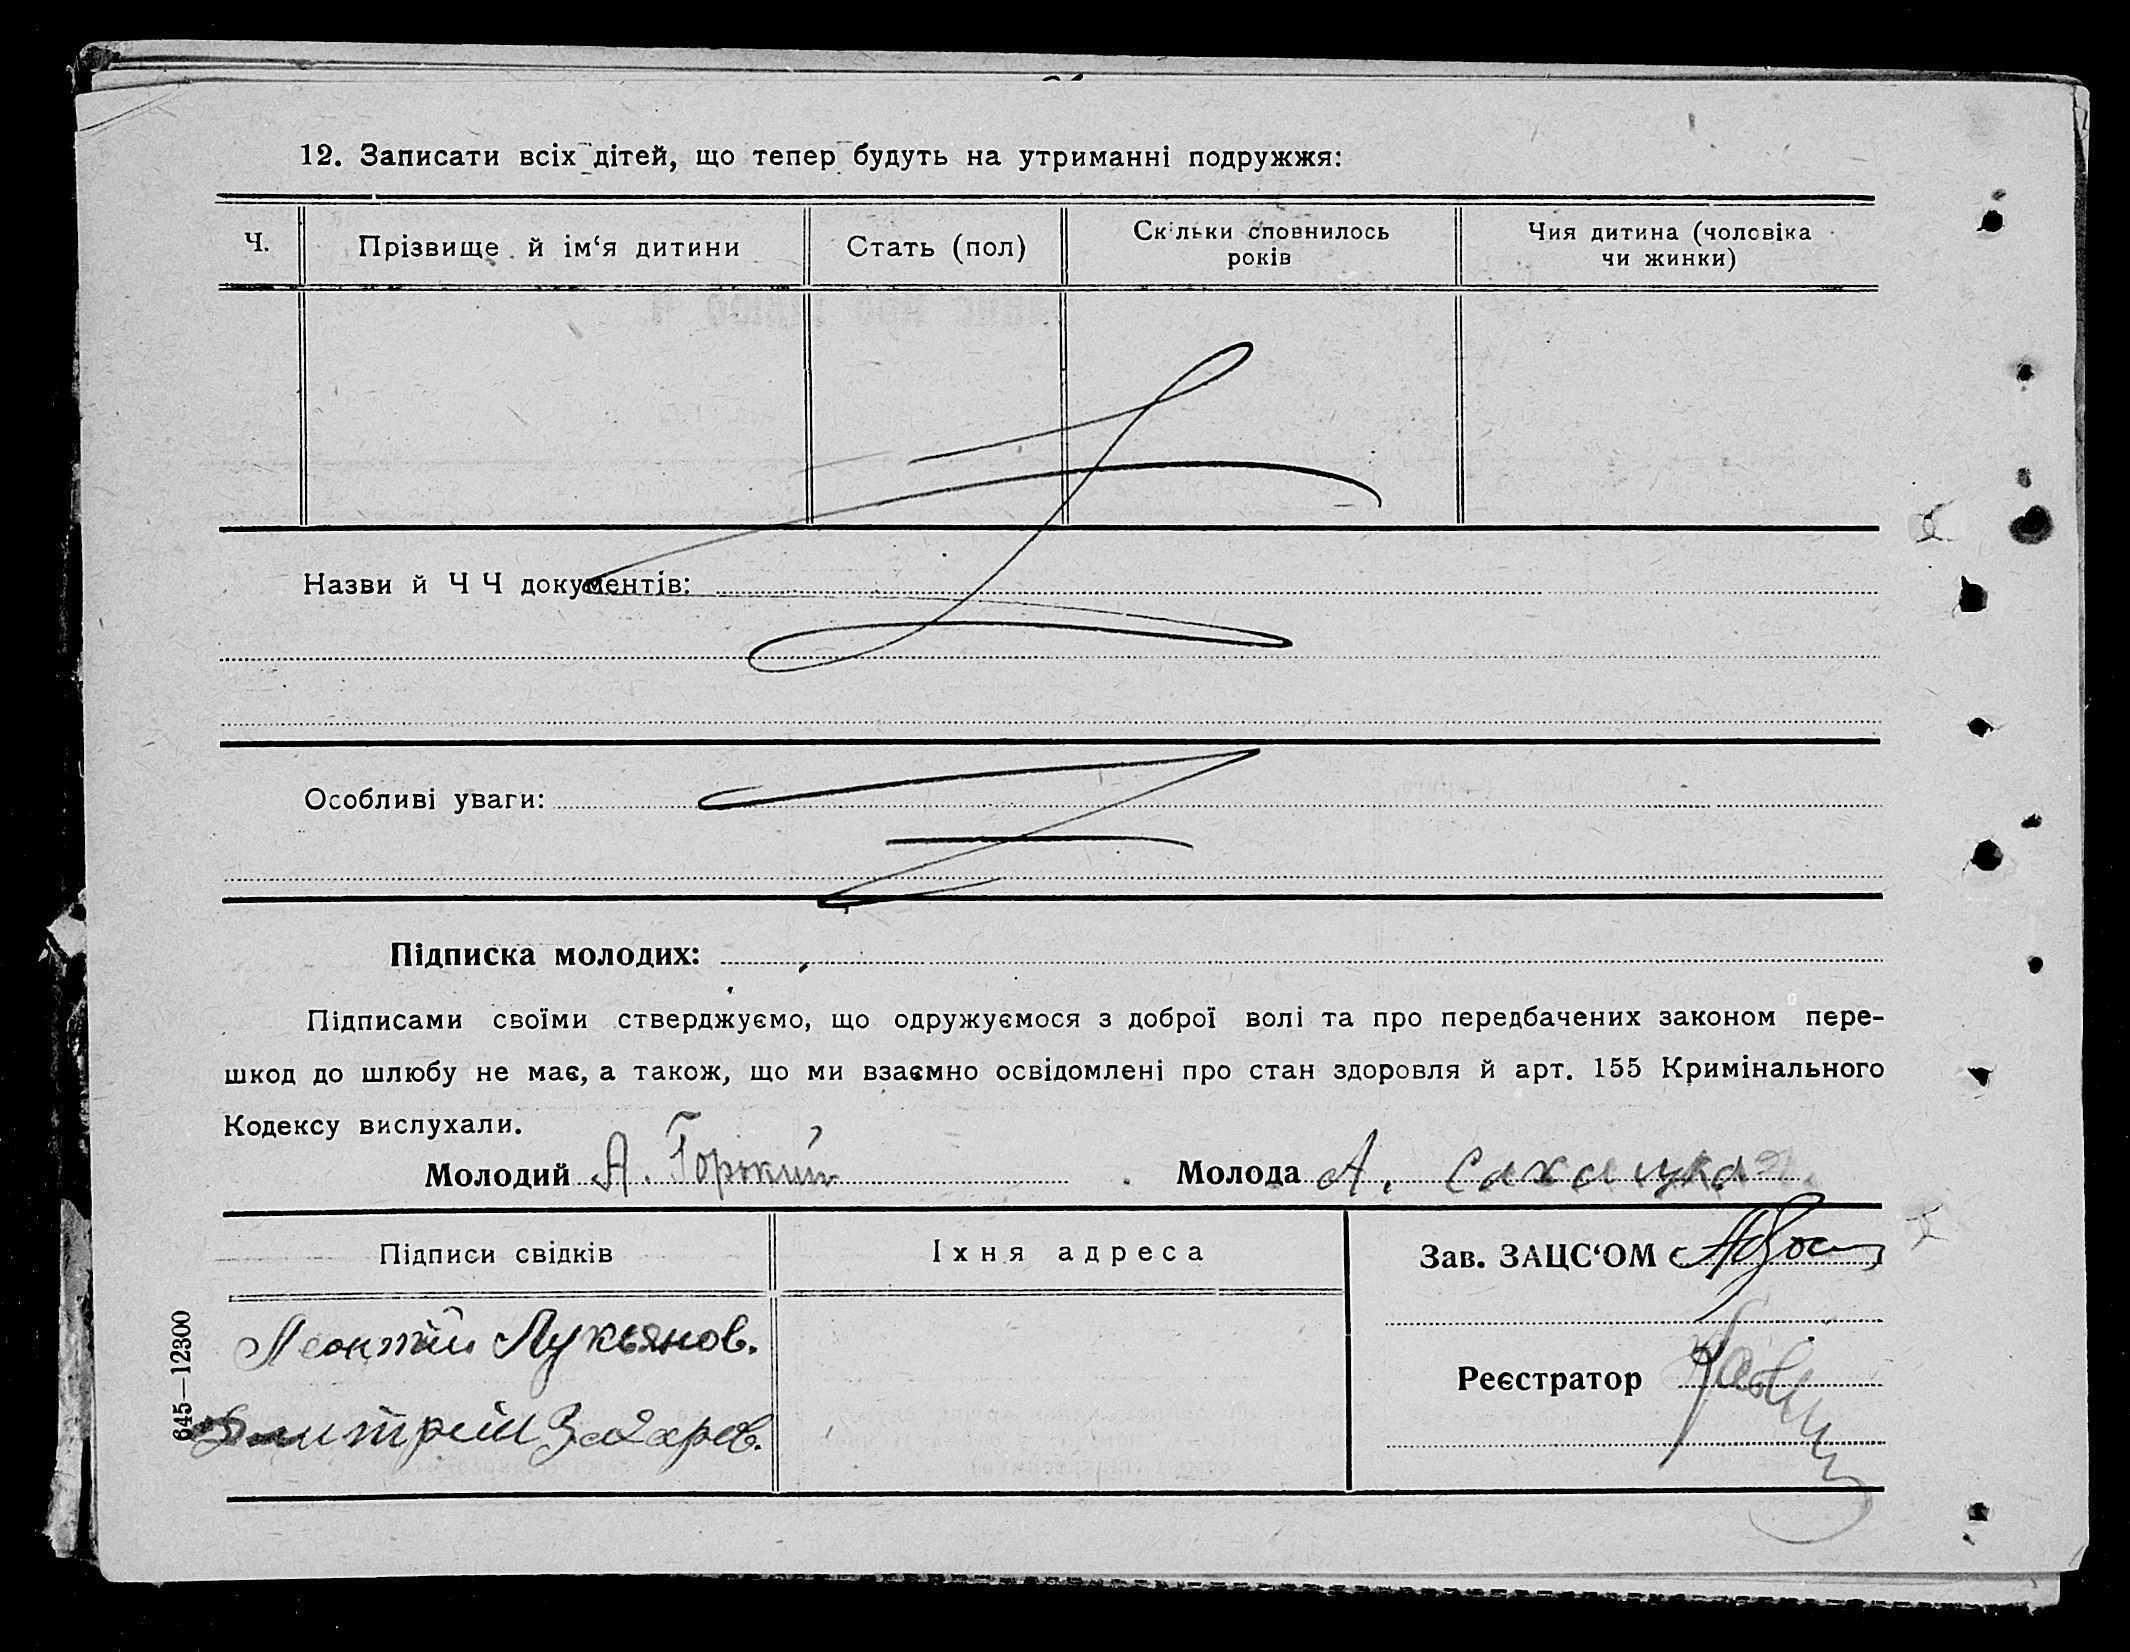 12. Записати всіх дітей, що тепер будуть на утриманні подружжя:
Ч.
Прізвище й ім‘я дитини
Стать (пол)
Скільки сповнилось
років
Чия дитина (чоловіка
чи жинки)
Назви й Ч Ч документів:
Особливі уваги:
Підписка молодих:
Підписами своїми стверджуємо, що одружуємося з доброї волі та про передбачених законом пере-
шкод до шлюбу не має, а також, що ми взаємно освідомлені про стан здоровля й арт. 155 Кримінального
Кодексу вислухали.
Молодий А. Горький
Молода А. Сахацкая
Підписи свідків
Іхня адреса
Зав. ЗАЦС‘ОМ
Леонтій Лукьянов.
Реєстратор
Дмитрий Захаров.
645—12300